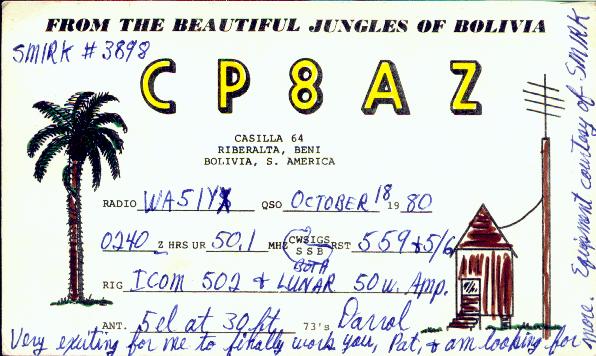 FROM THE BEAUTIFUL JUNGLES OF BOLIVIA
SMIRK # 3898
CP8AZ
CASILLA 64
RIBERALTA, BENI
BOLIVIA, S. AMERICA
RADIO WA5IYX QSO OCTOBER 18 19 80
0240 Z HRS UR 50.1 MHZ CW SIGS RST 559 & 5/6
SSB
BOTH
RIG ICOM 502 & LUNAR 50 w. Amp.
ANT. 5 el at 30 ft. 73's Darrol
Very exciting for me to finally work you, Pat, & am looking for
more. Equipment courtesy of SMIRK